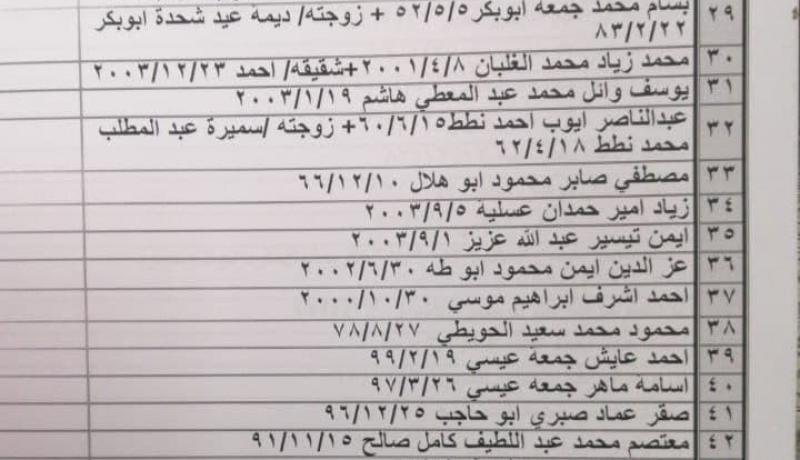 ٢٩ بسام محمد جمعه ابوبكر ٥٢/٥/٥ + زوجته/ ديمة عيد شحدة ابوبكر
٨٣/٢/٢٢
٣٠ محمد زياد محمد الغلبان ٢٠٠١/٤/٨+شقيقه/ احمد ٢٠٠٣/١٢/٢٣
٣١ يوسف وائل محمد عبد المعطي هاشم ٢٠٠٣/١/١٩
٣٢ عبدالناصر ايوب احمد نطط٦٠/٦/١٥+ زوجته /سميرة عبد المطلب
محمد نطط ٦٢/٤/١٨
٣٣ مصطفي صابر محمود ابو هلال ٦٦/١٢/١٠
٣٤ زياد امير حمدان عسلية ٢٠٠٣/٩/٥
٣٥ ايمن تيسير عبد الله عزيز ٢٠٠٣/٩/١
٣٦ عز الدين ايمن محمود ابو طه ٢٠٠٢/٦/٣٠
٣٧ احمد اشرف ابراهيم موسي ٢٠٠٠/١٠/٣٠
٣٨ محمود محمد سعيد الحويطي ٧٨/٨/٢٧
٣٩ احمد عايش جمعة عيسي ٩٩/٢/١٩
٤٠ اسامة ماهر جمعه عيسي ٩٧/٣/٢٦
٤١ صقر عماد صبري ابو حاجب ٩٦/١٢/٢٥
٤٢ معتصم محمد عبد اللطيف كامل صالح ٩١/١١/١٥